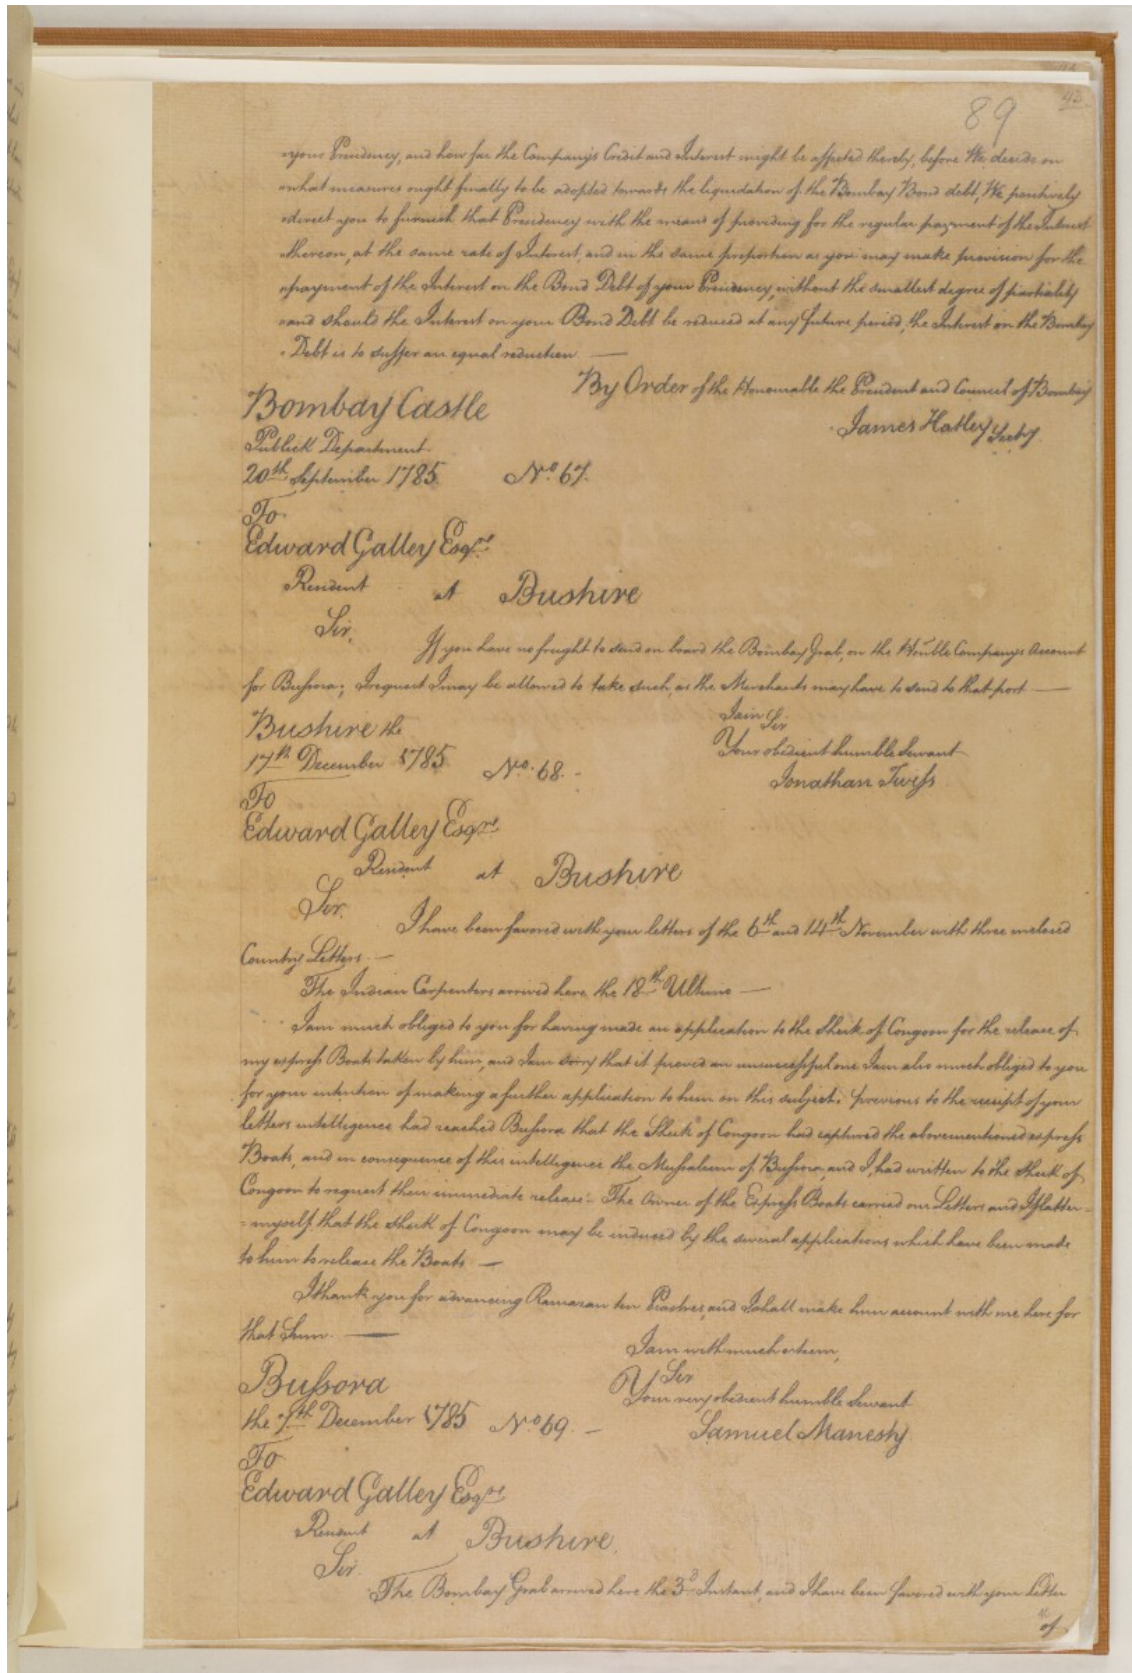 89
43
your Presidency, and how far the Company's Credit and Interest might be affected thereby, before We decide on
what measures ought finally to be adopted towards the liquidation of the Bombay Bond debt, We positively
direct you to furnish that Presidency with the means of providing for the regular payment of the Interest
thereon, at the same rate of Interest, and in the same proportion as you may make provision for the
payment of the Interest on the Bond Debt of your Presidency, without the smallest degree of partiality
and should the Interest on your Bond Debt be reduced at any future period, the Interest on the Bombay
Debt is to suffer an equal reduction —
By Order of the Honourable the President and Council of Bombay
Bombay Castle
James Hatley Secty.
Publick Department
20th September 1785. No. 67.
To
Edward Galley Esqre
Resident at Bushire
Sir,
If you have no freight to send on board the Bombay Grab, on the Honble Companys Account
for Bussora; I request I may be allowed to take such, as the Merchants may have to send to that port —
Bushire the
I am Sir
Your obedient humble Servant
17th December 1785 No. 68. -
Jonathan Twiss
To
Edward Galley Esqre
Resident at Bushire
Sir.
I have been favored with your letters of the 6th and 14th November with three inclosed
Country Letters. —
The Indian Carpenters arrived here the 18th Ultimo —
I am much obliged to you for having made an application to the Sheik of Congoon for the release of
my express Boats taken by him, and I am sorry that it proved an unsuccessful one I am also much obliged to you
for your intention of making a further application to him on this subject. previous to the receipt of your
letters intelligence had reached Bussora that the Sheik of Congoon had captured the abovementioned express
Boats, and in consequence of this intelligence the Mussaleem of Bussora, and I, had written to the Sheik of
Congoon to request their immediate release. The Owner of the Express Boats carried our Letters and I flatter =
= myself that the Sheik of Congoon may be induced by the several applications which have been made
to him to release the Boats —
I thank you for advancing Ramazan ten Piastres, and I shall make him account with me here for
that Sum. —
I am with much esteem,
Sir
Bussora
Your very obedient humble Servant
the 7th December 1785 No 69. -
Samuel Manesty
To
Edward Galley Esqre
Resident at Bushire.
Sir.
The Bombay Grab arrived here the 3d Instant, and I have been favored with your Letter
of